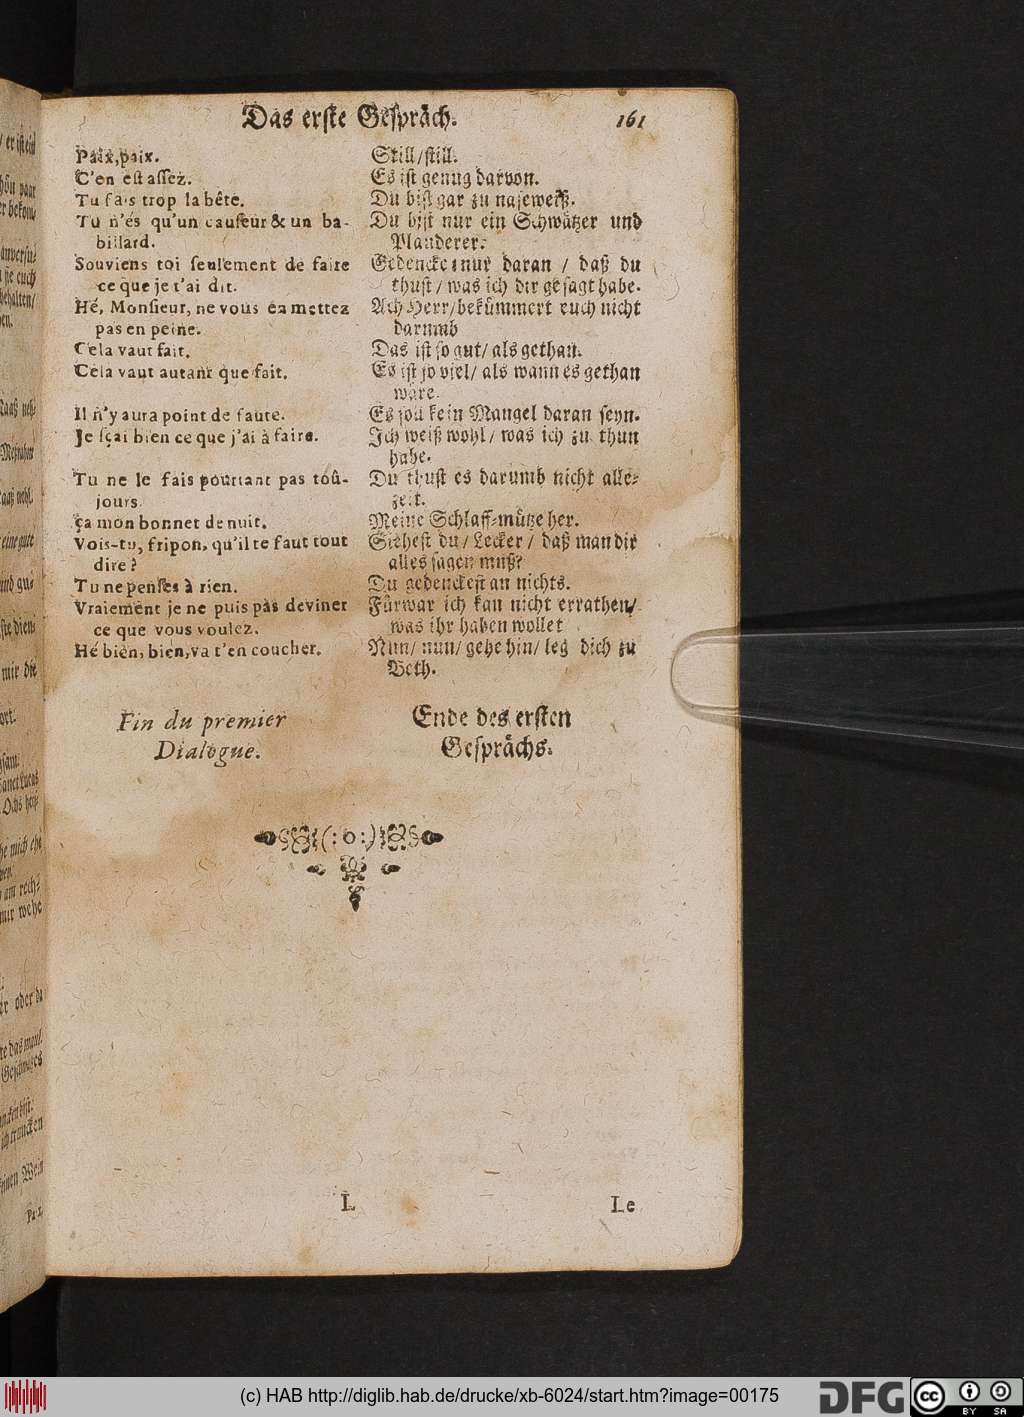 Das erste Gespräch. 161
Paix, paix.
C'en est assez.
Tu fais trop la bête.
Tu n'és qu'un causeur & un ba-
billard.
Souviens toi seulement de faire
ce que je t'ai dit.
Hé, Monsieur, ne vous en mettez
pas en peine.
Cela vaut fait.
Cela vaut autant que fait.
Il n'y aura point de faute.
Je sçai bien ce que j'ai à faire.
Tu ne le fais pourtant pas toû-
jours.
ça mon bonnet de nuit.
Vois-tu, fripon, qu'il te faut tout
dire?
Tu ne penses à rien.
Vraiement je ne puis pas deviner
ce que vous voulez.
Hé bien, bien, va t'en coucher.
Fin du premier
Dialogue.
Still/still.
Es ist genug darvon.
Du bist gar zu naseweiß.
Du bist nur ein Schwätzer und
Plauderer.
Gedencke nur daran / daß du
thust / was ich dir gesagt habe.
Ach Herr/bekümmert euch nicht
darumb
Das ist so gut/ als gethan.
Es ist so viel/ als wann es gethan
wäre.
Es soll kein Mangel daran seyn.
Ich weiß wohl/ was ich zu thun
habe.
Du thust es darumb nicht alle-
zeit.
Meine Schlaff-mütze her.
Siehest du/ Lecker / daß man dir
alles sagen muß?
Du gedenckest an nichts.
Fürwar ich kan nicht errathen/
was ihr haben wollet
Nun/ nun/ gehe hin/ leg dich zu
Beth.
Ende des ersten
Gesprächs.
(:o:)
L Le
(c) HAB http://diglib.hab.de/drucke/xb-6024/start.htm?image=00175
DFG
cc BY SA